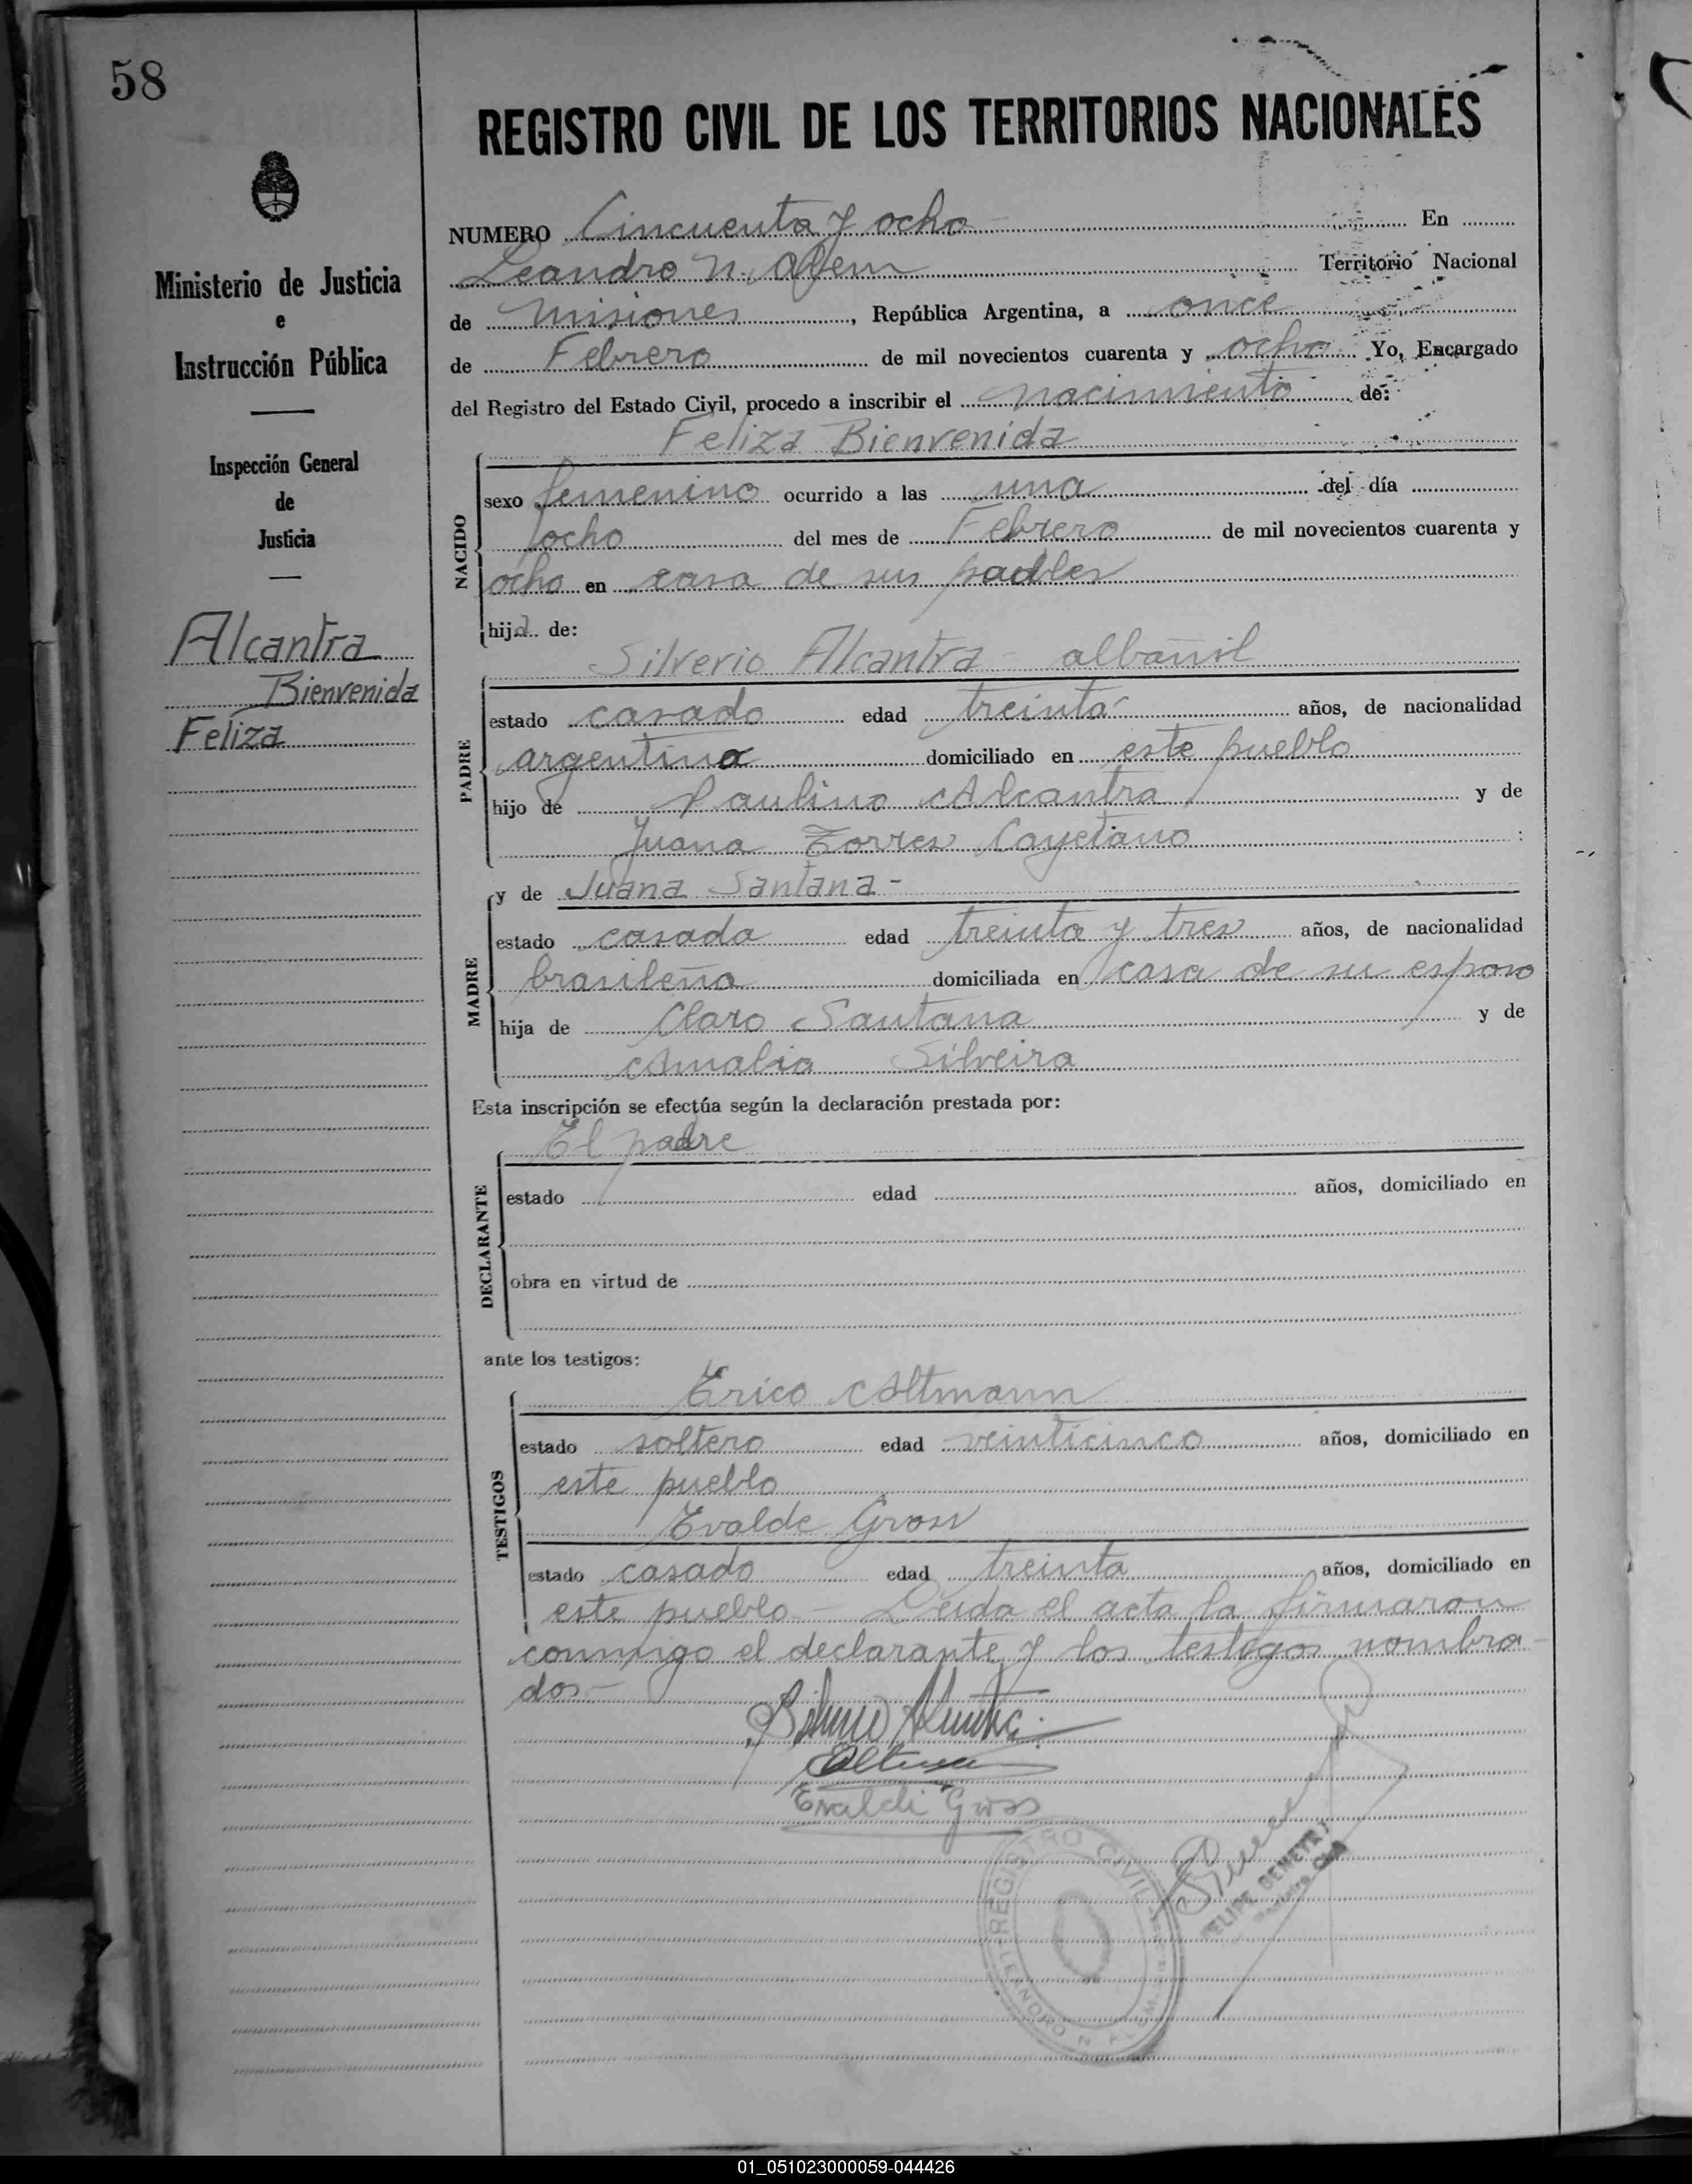 58
REGISTRO CIVIL DE LOS TERRITORIOS NACIONALES
Ministerio de Justicia
e
Instrucción Pública
Inspección General
de
Justicia
Alcantra
Bienvenida
Feliza
NUMERO Cincuenta y ocho En
Leandro N. Alem Territorio Nacional
de Misiones, República Argentina, a once
de Febrero de mil novecientos cuarenta y ocho Yo, Encargado
del Registro del Estado Civil, procedo a inscribir el nacimiento de:
Feliza Bienvenida
NACIDO
sexo femenino ocurrido a las una del día
ocho del mes de Febrero de mil novecientos cuarenta y
ocho en casa de sus padres
hija de:
Silverio Alcantra - albañil
PADRE
estado casado edad treinta años, de nacionalidad
argentina domiciliado en este pueblo
hijo de Paulino Alcantra y de
Juana Torres Cayetano
y de Juana Santana -
MADRE
estado casada edad treinta y tres años, de nacionalidad
brasileña domiciliada en casa de su esposo
hija de Claro Santana y de
Amalia Silveira
Esta inscripción se efectúa según la declaración prestada por:
El padre
DECLARANTE
estado edad años, domiciliado en
obra en virtud de
ante los testigos:
Erico Altmann
TESTIGOS
estado soltero edad veinticinco años, domiciliado en
este pueblo
Evalde Gross
estado casado edad treinta años, domiciliado en
este pueblo - Leida el acta la firmaron
conmigo el declarante y los testigos nombra-
dos.-
Evaldi Gross
REGISTRO CIVIL
LEANDRO N.
FELIPE DEMETRI
01_051023000059-044426